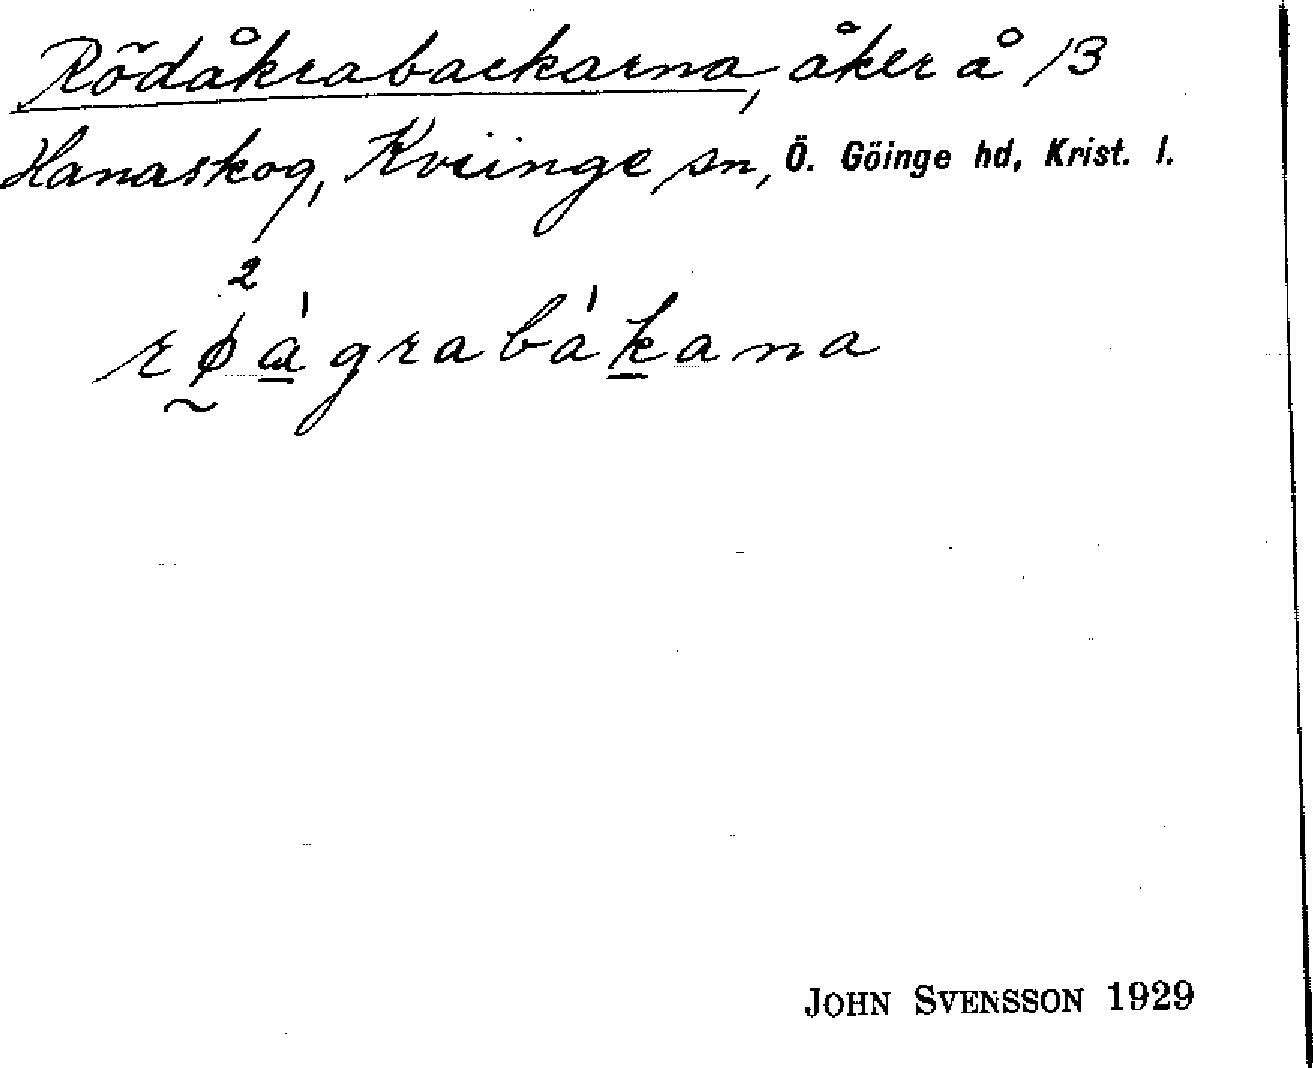 Rödåkrabackarna, åker å 13
Hanaskog, Kviinge sn, Ö. Göinge hd, Krist. l.
2
rø̰a̲̍grabák̲ana
JOHN SVENSSON 1929